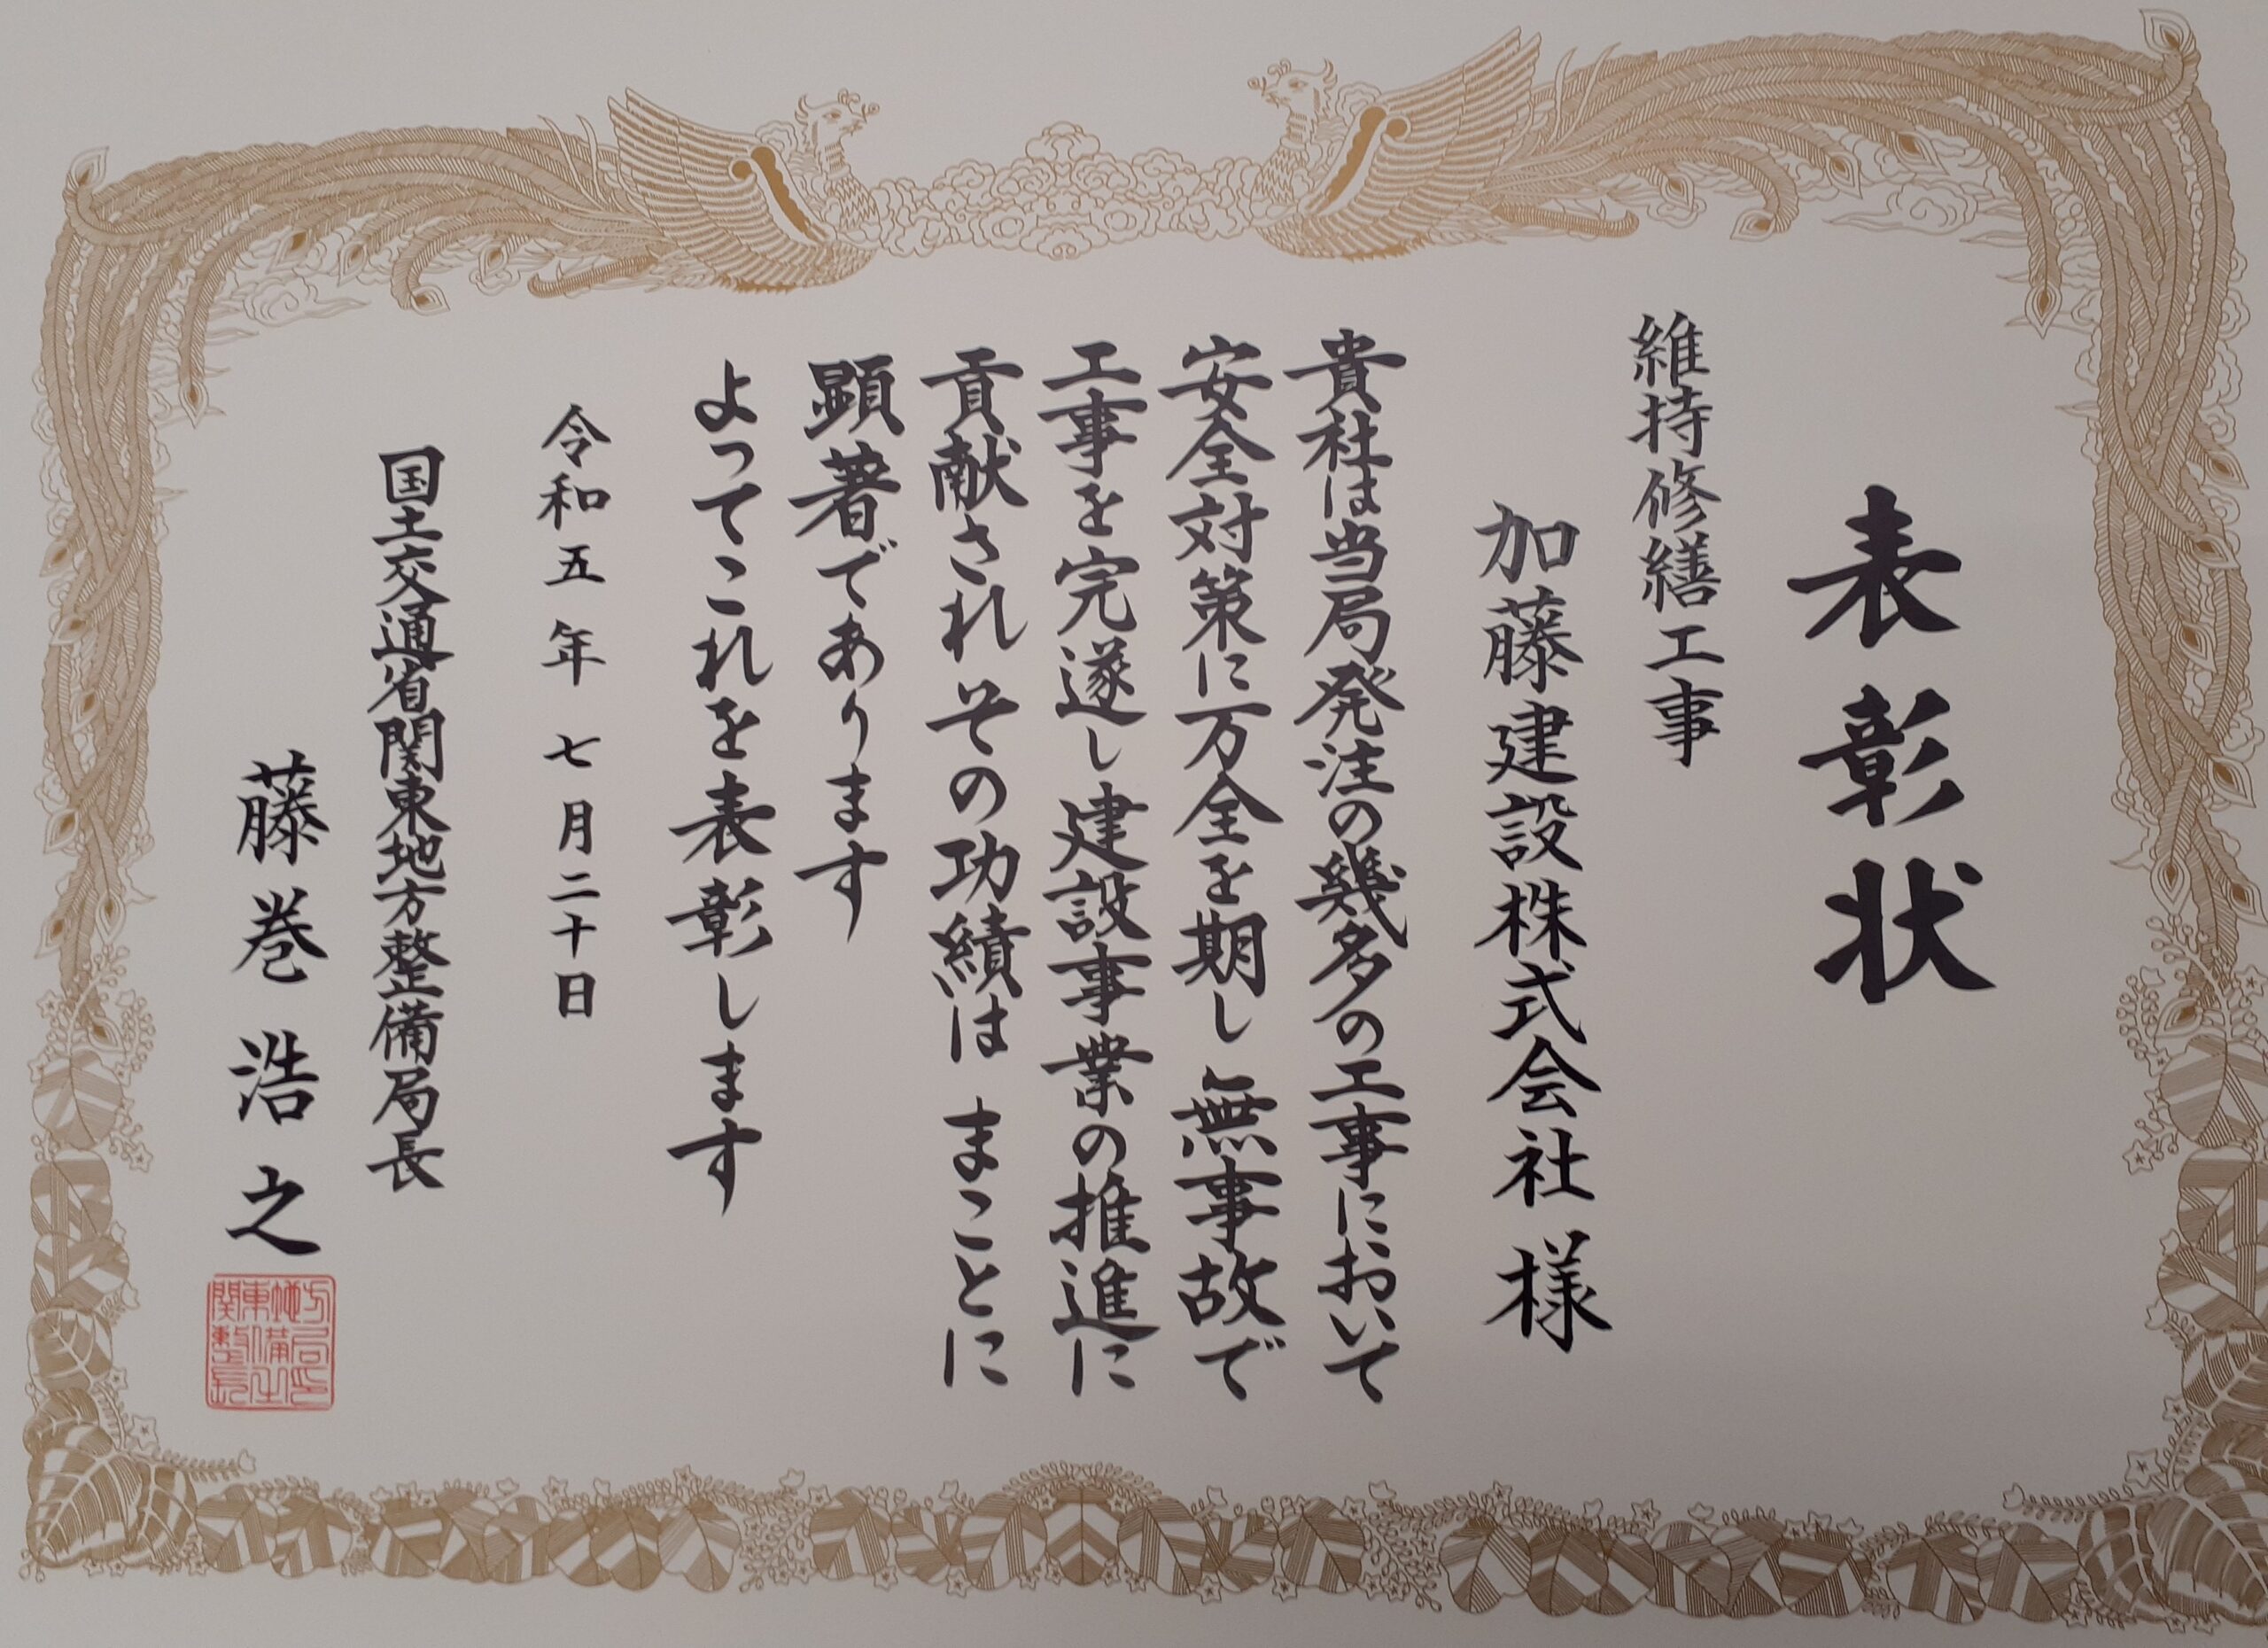 表彰状
維持修繕工事
加藤建設株式会社様
貴社は当局発注の幾多の工事において
安全対策に万全を期し無事故で
工事を完遂し建設事業の推進に
貢献されその功績はまことに
顕著であります
よってこれを表彰します
令和五年七月二十日
国土交通省関東地方整備局長
藤巻浩之